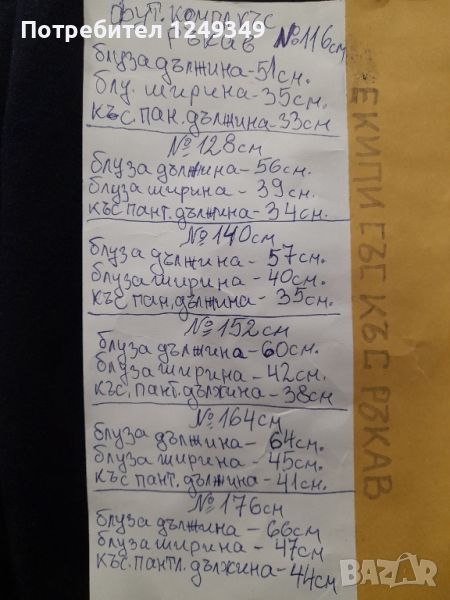 Потребител 1249349
фут. компл. къс
ръкав №116см
блуза дължина-51см.
блу. ширина-35см.
къс. пан. дължина-33см
№128см
блуза дължина-56см.
блуза ширина-39см.
къс пант. дължина-34см.
№140см
блуза дължина-57см.
блуза ширина-40см.
къс. пан. дължина-35см.
№152см
блуза дължина-60см.
блуза ширина-42см.
къс. пант. дължина-38см
№164см
блуза дължина-64см.
блуза ширина-45см.
къс. пант. дължина-41см.
№176см
блуза дължина-66см
блуза ширина-47см
къс. пантл. дължина-44см
ЕКИПИ СЪС КЪС РЪКАВ
BAZAR